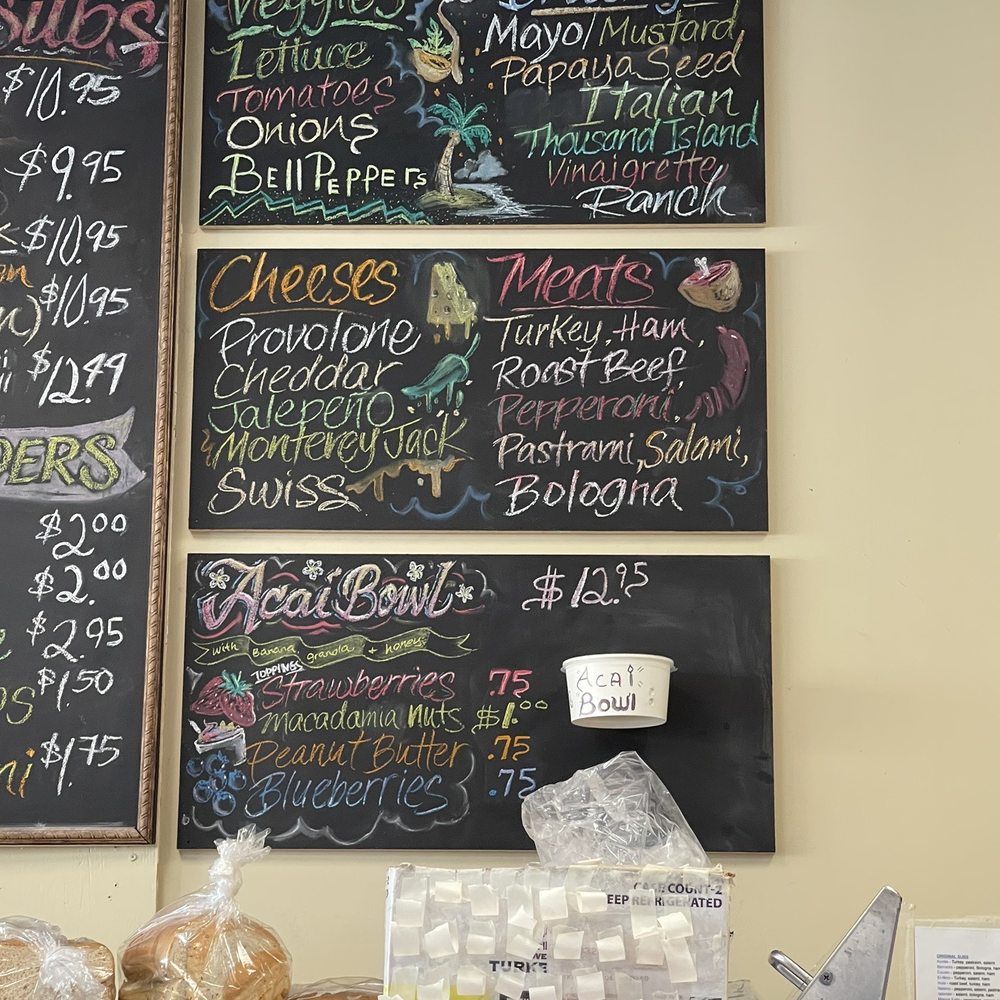 Subs
$10.95
$9.95
$10.95
$10.95
$12.49
PERS
$2.00
$2.00
$2.95
$1.50
$1.75
Veggies
Lettuce
Tomatoes
Onions
Bell Peppers
Mayo/Mustard
Papaya Seed
Italian
Thousand Island
Vinaigrette
Ranch
Cheeses
Provolone
Cheddar
Jalepeño
Monterey Jack
Swiss
Meats
Turkey, Ham,
Roast Beef,
Pepperoni,
Pastrami, Salami,
Bologna
Acai Bowl $12.95
with Banana, granola + honey
Toppings
Strawberries .75
macadamia nuts $1.00
Peanut Butter .75
Blueberries .75
Acai
Bowl
CASE COUNT-2
EEP REFRIGERATED
TURKE